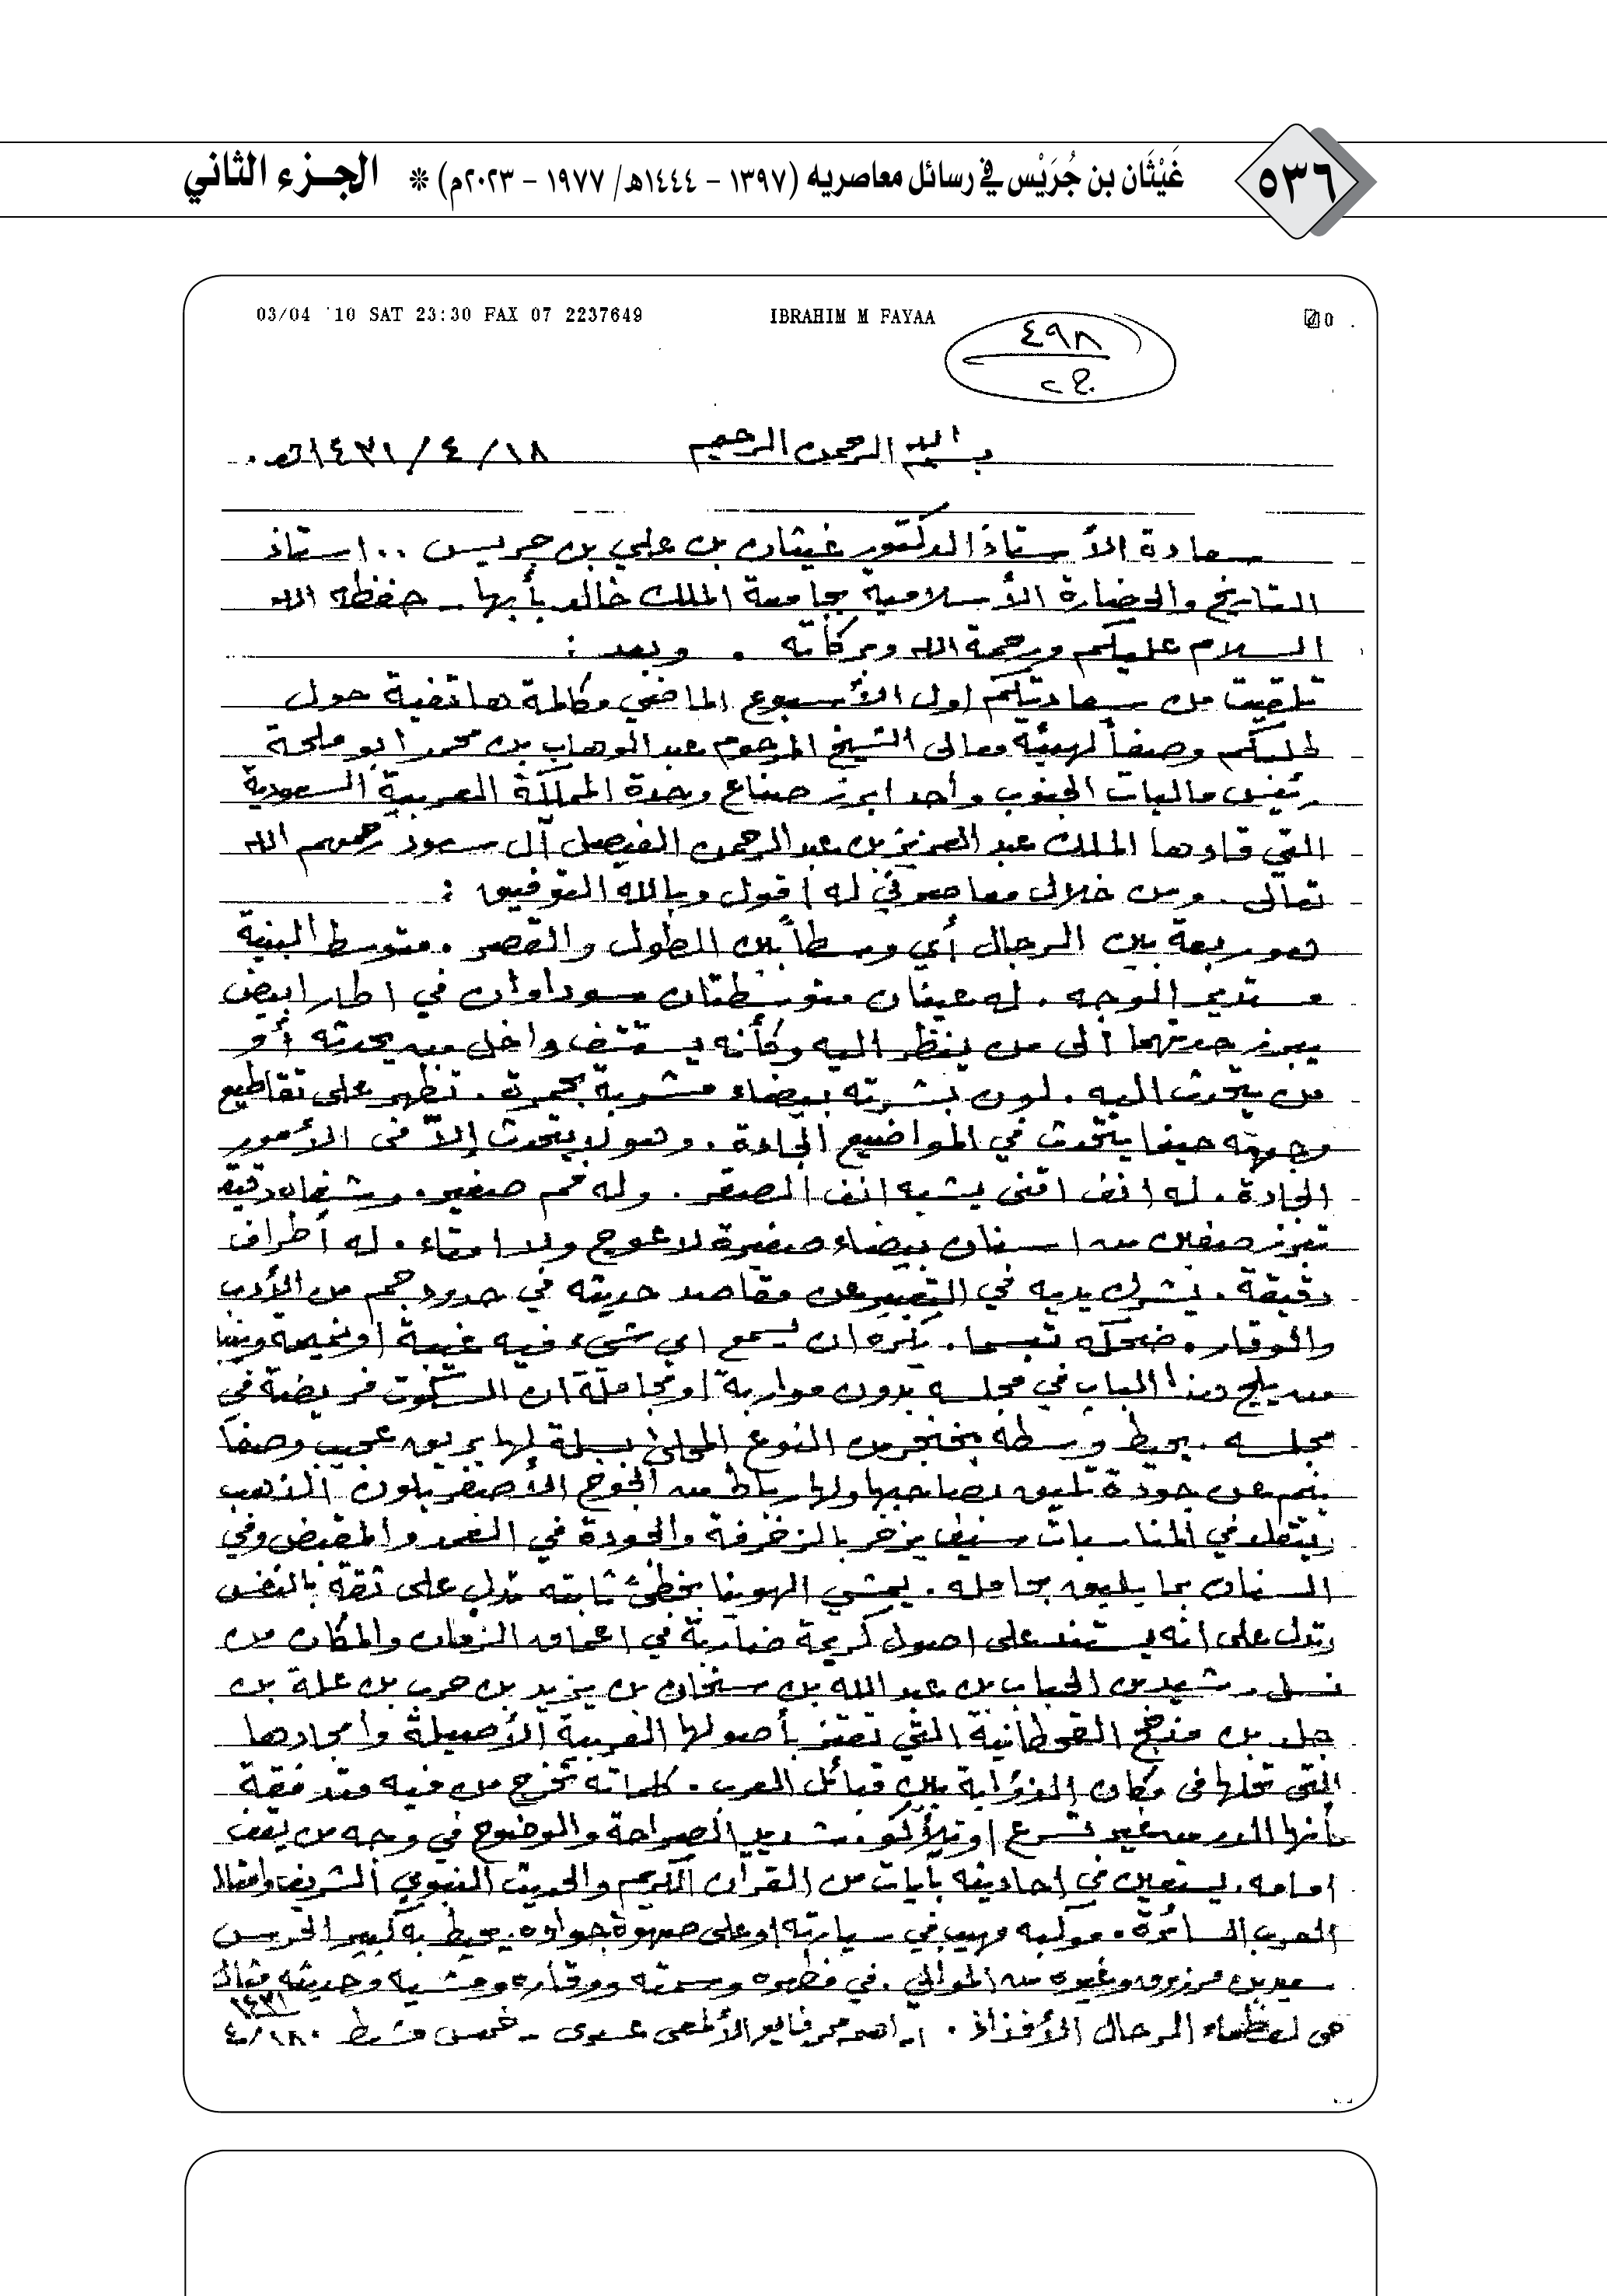 ٥٣٦
غَيْثَان بن جُرَيْس في رسائل معاصريه (١٣٩٧ – ١٤٤٤هـ/ ١٩٧٧ – ٢٠٢٣م) * الجـزء الثاني
03/04 '10 SAT 23:30 FAX 07 2237649 IBRAHIM M FAYAA
٤٩٨
ج٢
بسم الله الرحمن الرحيم ١٨/٤/١٤٣١هـ.
سعادة الأستاذ الدكتور غيثان بن علي بن جريس .. استاذ
التاريخ والحضارة الأسلامية بجامعة الملك خالد بأبها - حفظه الله
السلام عليكم ورحمة الله وبركاته . وبعد :
تلقيت من سعادتكم اول الأسبوع الماضي مكالمة هاتفية حول
طلبكم وصفاً لهيئة معالى الشيخ المرحوم عبد الوهاب بن محمد ابو ملحة
رئيس ماليات الجنوب وأحد ابرز صناع وحدة المملكة العربية السعودية
التي قادها الملك عبد العزيز بن عبد الرحمن الفيصل آل سعود رحمهم الله
تعالى. ومن خلال معاصرتي له أقول وبالله التوفيق :
هو ربعة بين الرجال أي وسطاً بين الطول والقصر . متوسط البنية
مستدير الوجه . له عينان متوسطتان سوداوان في اطار ابيض
يبرز حدتهما الى من ينظر اليه وكأنه يستشف داخل من يحدثه أو
من يتحدث اليه . لون بشرته بيضاء مشربة بحمرة . تظهر على تقاطيع
وجهه حينما يتحدث في المواضيع الجادة . وهو لا يتحدث إلاّ فى الأمور
الجادة . له انف اقنى يشبه انف الصقر . وله فم صغير . وشفاه دقيقة
تبرز صفين من اسنان بيضاء صغيرة لا عوج ولا امتاء . له أطراف
دقيقة . يشرك يديه في التعبير عن مقاصد حديثه في حدود جم من الأدب
والوقار . ضحكه تبسما . يكره ان يسمع اي شيء فيه غيبة او نميمة
من يلج هذا الباب في مجلسه بدون مواربة او مجاملة ان السكوت فريضة في
مجلسه . يحيط وسطه بخنجر من النوع المحلى بسلة لها بريق عجيب وصفا
ينم عن جودة تليق بصاحبها ولها رباط من الجوخ الأصفر بلون الذهب
ويتقلد في المناسبات سيف يزخر بالزخرفة والجودة في الغمد والمقبض وفي
السنان بما يليق بحامله . يمشي الهوينا بخطئ ثابته تدل على ثقة بالنفس
وتدل على انه يستند على اصول كريمة ضاربة في اعماق الزمان والمكان من
نسل رشيد بن الحباب بن عبد الله بن سنحان بن يزيد بن حرب بن علة بن
جلد بن مذحج القحطانية التي تعتز بأصولها العربية الأصيلة وأمجادها
التي تحلها فى مكان الذؤابة بين قبائل العرب . كلماته تخرج من فيه متدفقة
كأنها الدر من غير تسرع او تلأكو . شديد الصراحة والوضوح في وجه من يقف
امامه . يستعين في احاديثه بآيات من القرآن الكريم والحديث النبوي الشريف وامثال
العرب السائرة . موكبه مهيب في سيارته او على صهوة جواده . يحيط به كبير الحرس
سعيد بن مرزوق وغيره من الموالي . في مظهره وسمته ووقاره ومشيه وحديثه مثال
حي لعظماء الرجال الأفذاذ . ابراهيم محمد فايع الألمعى عسيرى - خميس مشيط ١٨/٤/
١٤٣١